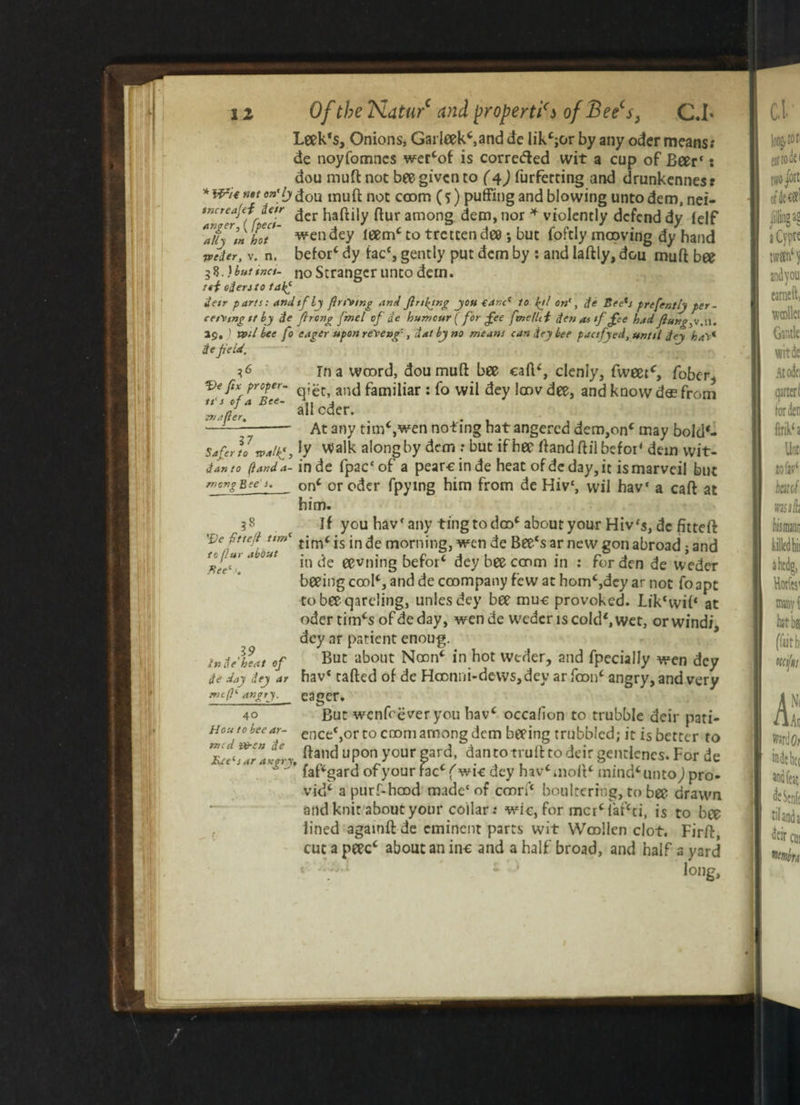 12 Of the Natur‘ and properti‘s of Bee‘s, C.I.
Leek‘s, Onions, Garleek‘, and de lik‘; or by any oder means:
de noysomnes wer‘of is corrected wit a cup of Beer‘:
dou must not bee given to (4) surfetting and drunkennes:
* Wie not on‘ly dou must not coom (5) puffing and blowing unto dem, nei-
increaseł deir der hastily stur among dem, nor * violently defend dy self
anger, (speci-
ally in hot wen dey seem‘ to tretten dee; but softly mooving dy hand
weder, v. n. befor‘ dy fac‘, gently put dem by: and lastly, dou must bee
38.) but inci- no Stranger unto dem.
teł oders to tak‘
deir parts: and if by striving and striking you hanc‘ to kil on‘, de Bee‘s presently per-
ceiving it by de strong smel of de humour (for hee smelleł den as if hee had stung, v. n.
29.) wil bee so eager upon reveng‘, dat by no means can dey bee pacifyed, until dey hav‘
de field.
36 In a word, dou must bee cast‘, clenly, sweet‘, sober,
De six proper-
ti‘s of a Bee- qiët, and familiar: so wil dey loov dee, and know dee from
master. all oder.
At any tim‘, wen noting hat angered dem, on‘ may bold‘-
37
Safer to walk‘, ly walk along by dem: but if hee stand stil befor‘ dem wit-
dan to stand a- in de spac‘ of a peare in de heat of de day, it is marveil but
mong Bee‘s. on‘ or oder spying him from de Hiv‘, wil hav‘ a cast at
him.
38 If you hav‘ any ting to doo‘ about your Hiv‘s, de fittest
De fittest tim‘ tim‘ is in de morning, wen de Bee‘s ar new gon abroad; and
to stur about
Bee‘s. in de eevning befor‘ dey bee coom in: for den de weder
beeing cool‘, and de coompany few at hom‘, dey ar not so apt
to bee qareling, unles dey bee muc provoked. Lik‘wis‘ at
oder tim‘s of de day, wen de weder is cold‘, wet, or windi,
dey ar patient enoug.
39
In de heat of But about Noon‘ in hot weder, and specially wen dey
de day dey ar hav‘ tasted of de Hoonni-dews, dey ar soon‘ angry, and very
most‘ angry. eager.
40 But wensoëver you hav‘ occasion to trubble deir pati-
Hou to bee ar- enc‘, or to coom among dem beeing trubbled; it is better to
med wen de
Bee‘s ar angry. stand upon your gard, dan to trust to deir gentlenes. For de
saf‘gard of your fac‘ (wic dey hav‘ most‘ mind‘ unto) pro-
vid‘ a purs-hood made‘ of coors‘ boultering, to bee drawn
and knit about your collar: wic, for mor‘ saf‘ti, is to bee
lined against de eminent parts wit Woollen clot. First,
cut a peec‘ about an inc and a half broad, and half a yard
long,